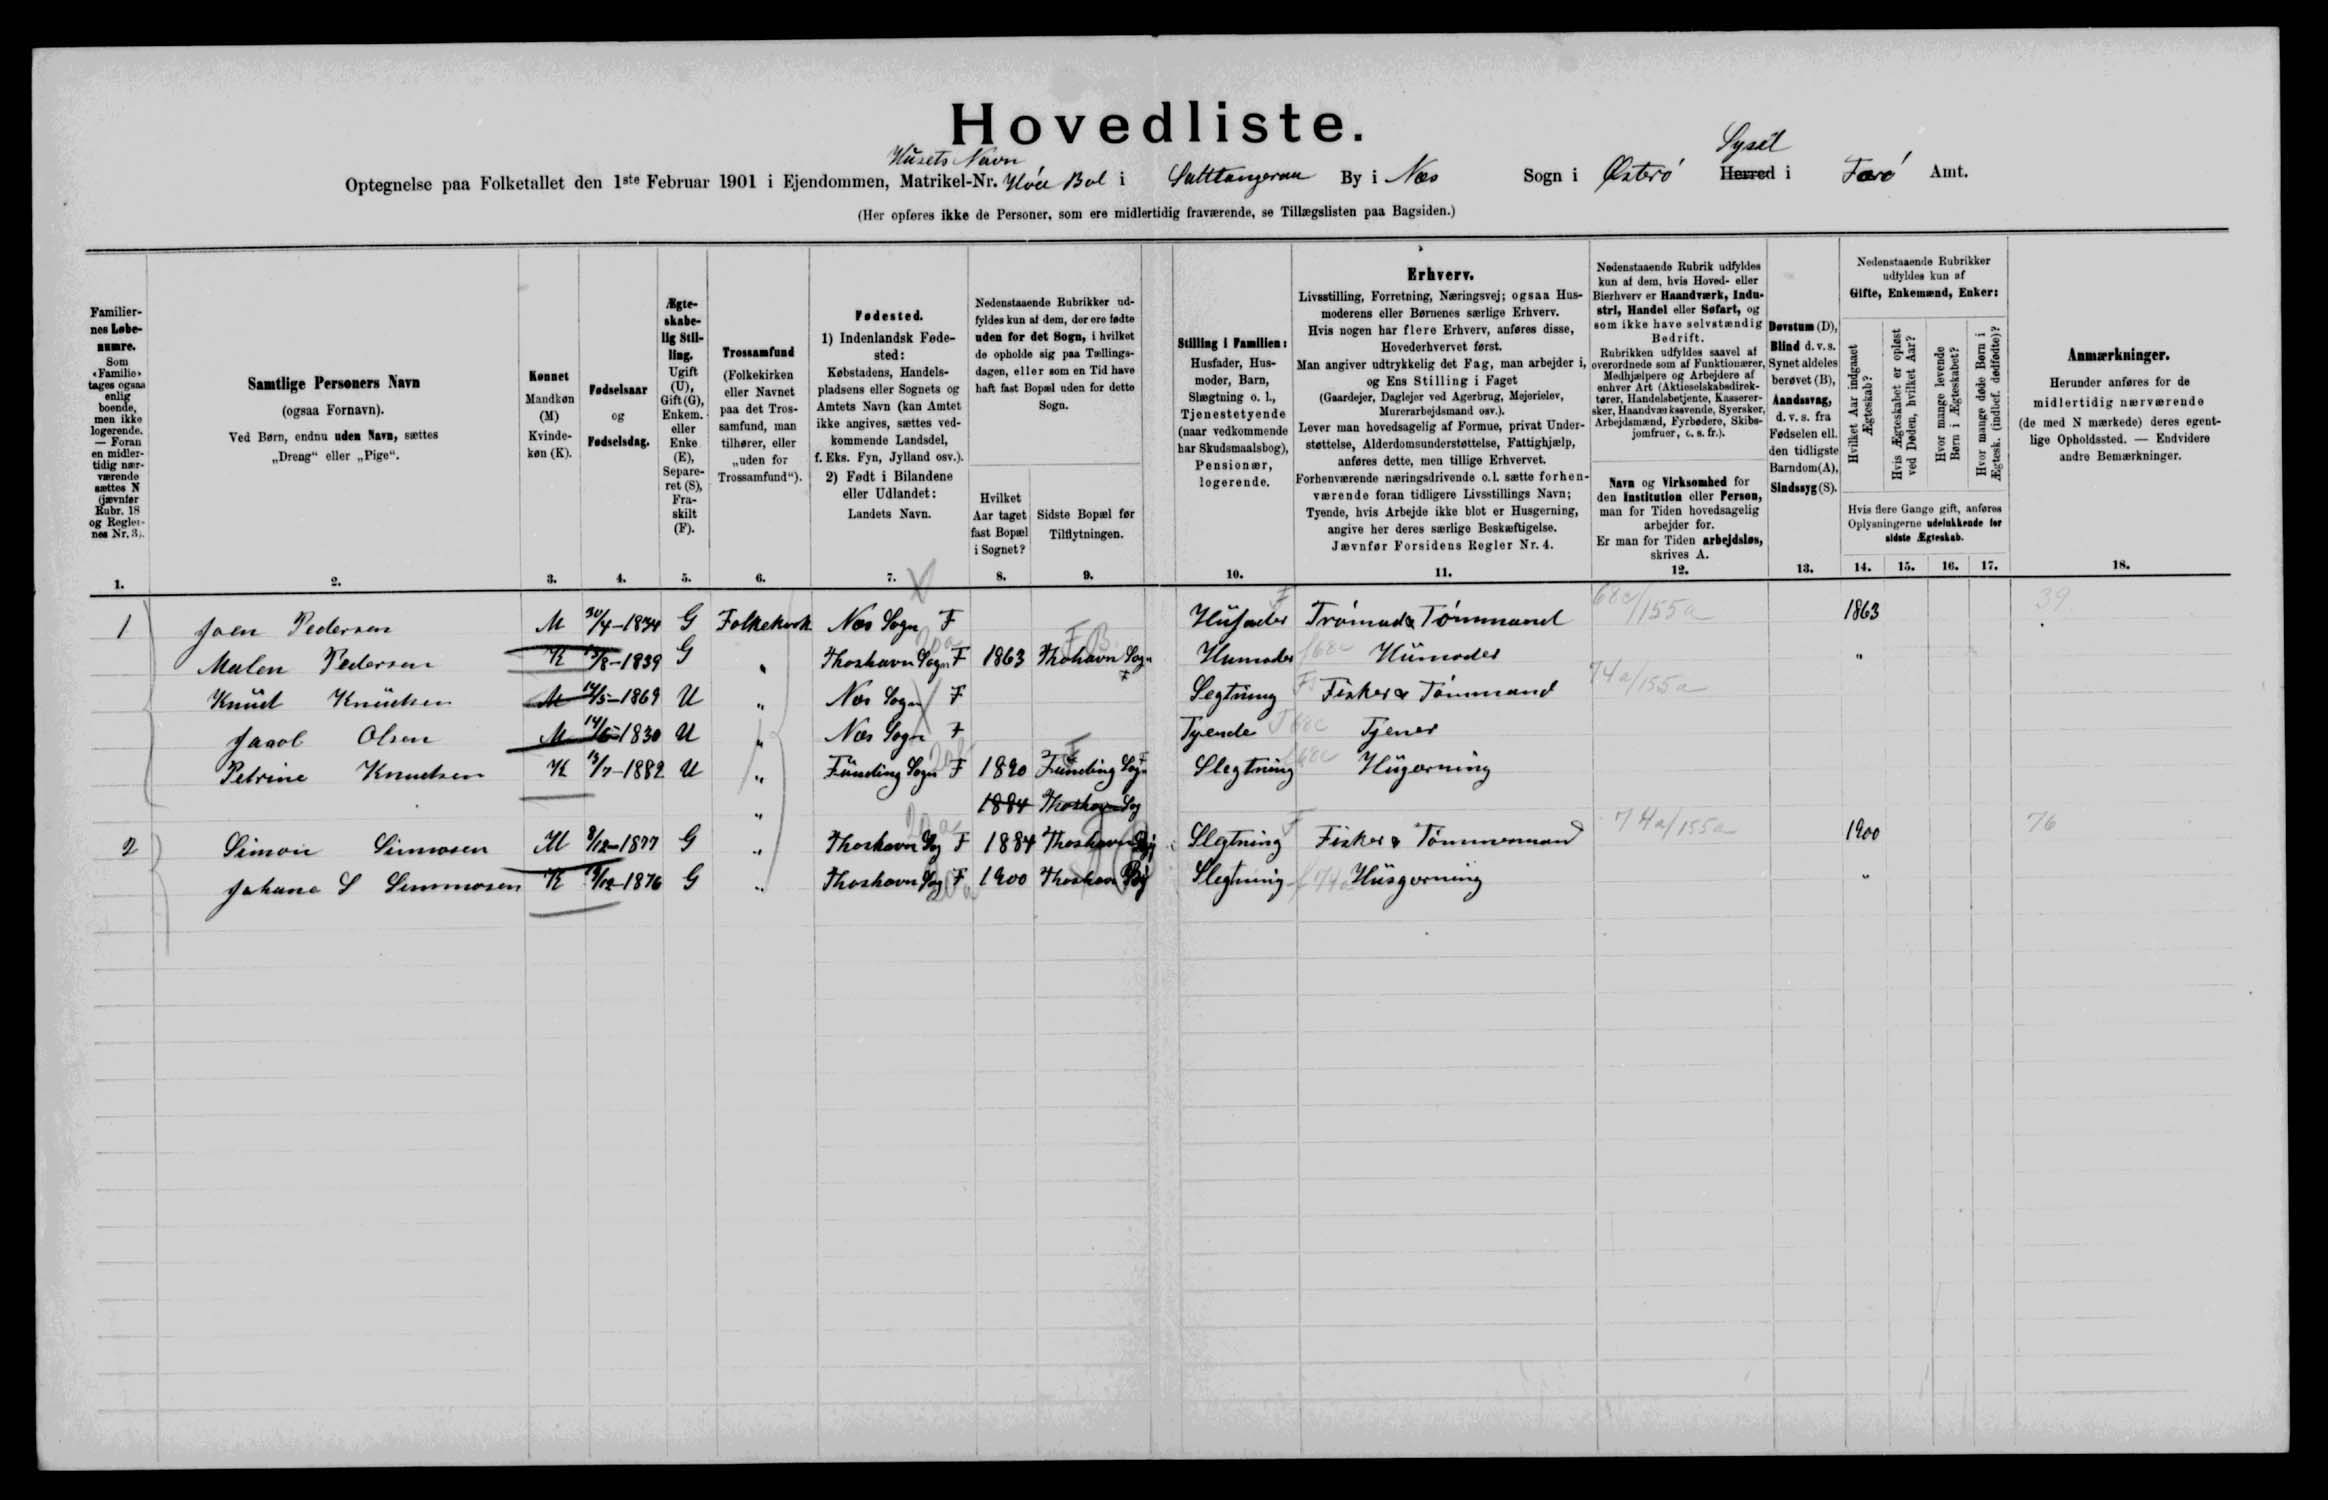 Hovedliste.
Husets Navn
Sysel
Optegnelse paa Folketallet den 1ste Februar 1901 i Ejendommen, Matrikel-Nr. Bol i Salttangeraa By i Næs Sogn i Østerø Herred i Færø Amt.
(Her opføres ikke de Personer, som ere midlertidig fraværende, se Tillægslisten paa Bagsiden.)
Familiernes Løbenumre.
Som «Familie» tages ogsaa enlig boende, men ikke logerende. — Foran en midlertidig nærværende sættes N (jævnfør Rubr. 18 og Reglernes Nr. 3).
Samtlige Personers Navn
(ogsaa Fornavn).
Ved Børn, endnu uden Navn, sættes
„Dreng“ eller „Pige“.
Kønnet
Mandkøn (M)
Kvindekøn (K).
Fødselsaar
og
Fødselsdag.
Ægteskabelig Stilling.
Ugift (U), Gift (G), Enkem. eller Enke (E), Separeret (S), Fraskilt (F).
Trossamfund
(Folkekirken eller Navnet paa det Trossamfund, man tilhører, eller „uden for Trossamfund“).
Fødested.
1) Indenlandsk Fødested:
Købstadens, Handelspladsens eller Sognets og Amtets Navn (kan Amtet ikke angives, sættes vedkommende Landsdel, f. Eks. Fyn, Jylland osv.).
2) Født i Bilandene eller Udlandet:
Landets Navn.
Nedenstaaende Rubrikker udfyldes kun af dem, der ere fødte uden for det Sogn, i hvilket de opholde sig paa Tællingsdagen, eller som en Tid have haft fast Bopæl uden for dette Sogn.
Hvilket Aar taget fast Bopæl i Sognet?
Sidste Bopæl før Tilflytningen.
Stilling i Familien:
Husfader, Husmoder, Barn, Slægtning o. l., Tjenestetyende (naar vedkommende har Skudsmaalsbog), Pensionær, logerende.
Erhverv.
Livsstilling, Forretning, Næringsvej; ogsaa Husmoderens eller Børnenes særlige Erhverv.
Hvis nogen har flere Erhverv, anføres disse, Hovederhvervet først.
Man angiver udtrykkelig det Fag, man arbejder i, og Ens Stilling i Faget
(Gaardejer, Daglejer ved Agerbrug, Mejerielev, Murerarbejdsmand osv.).
Lever man hovedsagelig af Formue, privat Understøttelse, Alderdomsunderstøttelse, Fattighjælp, anføres dette, men tillige Erhvervet.
Forhenværende næringsdrivende o. l. sætte forhenværende foran tidligere Livsstillings Navn;
Tyende, hvis Arbejde ikke blot er Husgerning, angive her deres særlige Beskæftigelse.
Jævnfør Forsidens Regler Nr. 4.
Nedenstaaende Rubrik udfyldes kun af dem, hvis Hoved- eller Bierhverv er Haandværk, Industri, Handel eller Søfart, og som ikke have selvstændig Bedrift.
Rubrikken udfyldes saavel af overordnede som af Funktionærer, Medhjælpere og Arbejdere af enhver Art (Aktieselskabsdirektører, Handelsbetjente, Kasserersker, Haandværkssvende, Syersker, Arbejdsmænd, Fyrbødere, Skibsjomfruer, o. s. fr.).
Navn og Virksomhed for den Institution eller Person, man for Tiden hovedsagelig arbejder for.
Er man for Tiden arbejdsløs, skrives A.
Døvstum (D), Blind d. v. s. Synet aldeles berøvet (B), Aandssvag, d. v. s. fra Fødselen ell. den tidligste Barndom (A), Sindssyg (S).
Nedenstaaende Rubrikker udfyldes kun af
Gifte, Enkemænd, Enker:
Hvilket Aar indgaaet Ægteskab?
Hvis Ægteskabet er opløst ved Døden, hvilket Aar?
Hvor mange levende Børn i Ægteskabet?
Hvor mange døde Børn i Ægtesk. (indbef. dødfødte)?
Hvis flere Gange gift, anføres Oplysningerne udelukkende for sidste Ægteskab.
Anmærkninger.
Herunder anføres for de midlertidig nærværende (de med N mærkede) deres egentlige Opholdssted. — Endvidere andre Bemærkninger.
1. 2. 3. 4. 5. 6. 7. 8. 9. 10. 11. 12. 13. 14. 15. 16. 17. 18.
1 Joen Pedersen M 30/4-1834 G Folkekirk Næs Sogn F Husfader Tømmand 68c/155a 1863 39
Malen Pedersen K 13/8-1839 G " Thoshavn Sogn F 1863 Thohavn Sogn F Humoder 68c Húmoder "
Knúd Knúdsen M 14/5-1869 U " Næs Sogn F Segtning Fisker & Tømmand 74a/155a
Olsen M 14/5-1830 U " Næs Sogn F Tyende Tjener
Petrine Knudsen K 13/7-1882 U " Fúnding Sogn F 1890 Fúnding Sogn F Slegtning 68c Húgerning
" 1884 Thoshavn Sog
2 Simon Simmosen M 8/12-1877 G " Thoshavn Sog F 1884 Thoshavn Slegtning Fisker & Tømmermand 74a/155a 1900 76
Johane S Simmosen K /12-1876 G " Thoshavn Sog F 1900 Thoshavn Slegtning Húsgerning "